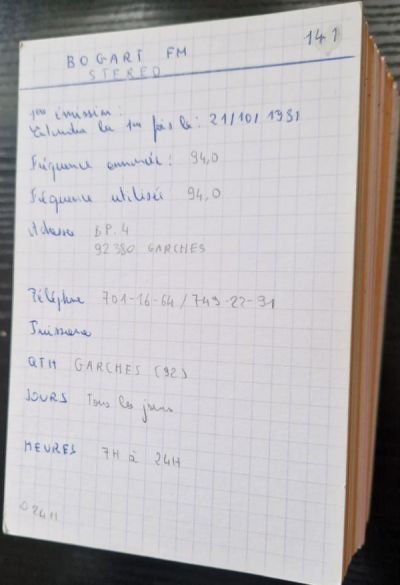 141
BOGART FM
STEREO
1ère émission :
Entendu la 1ère fois le : 21/10/1981
Fréquence annoncée : 94,0
Fréquence utilisée 94,0
Adresse BP. 4
92380 GARCHES
Téléphone 701-16-64 / 749-22-91
Puissance
QTH GARCHES (92)
JOURS Tous les jours
HEURES 7H à 24H
24H